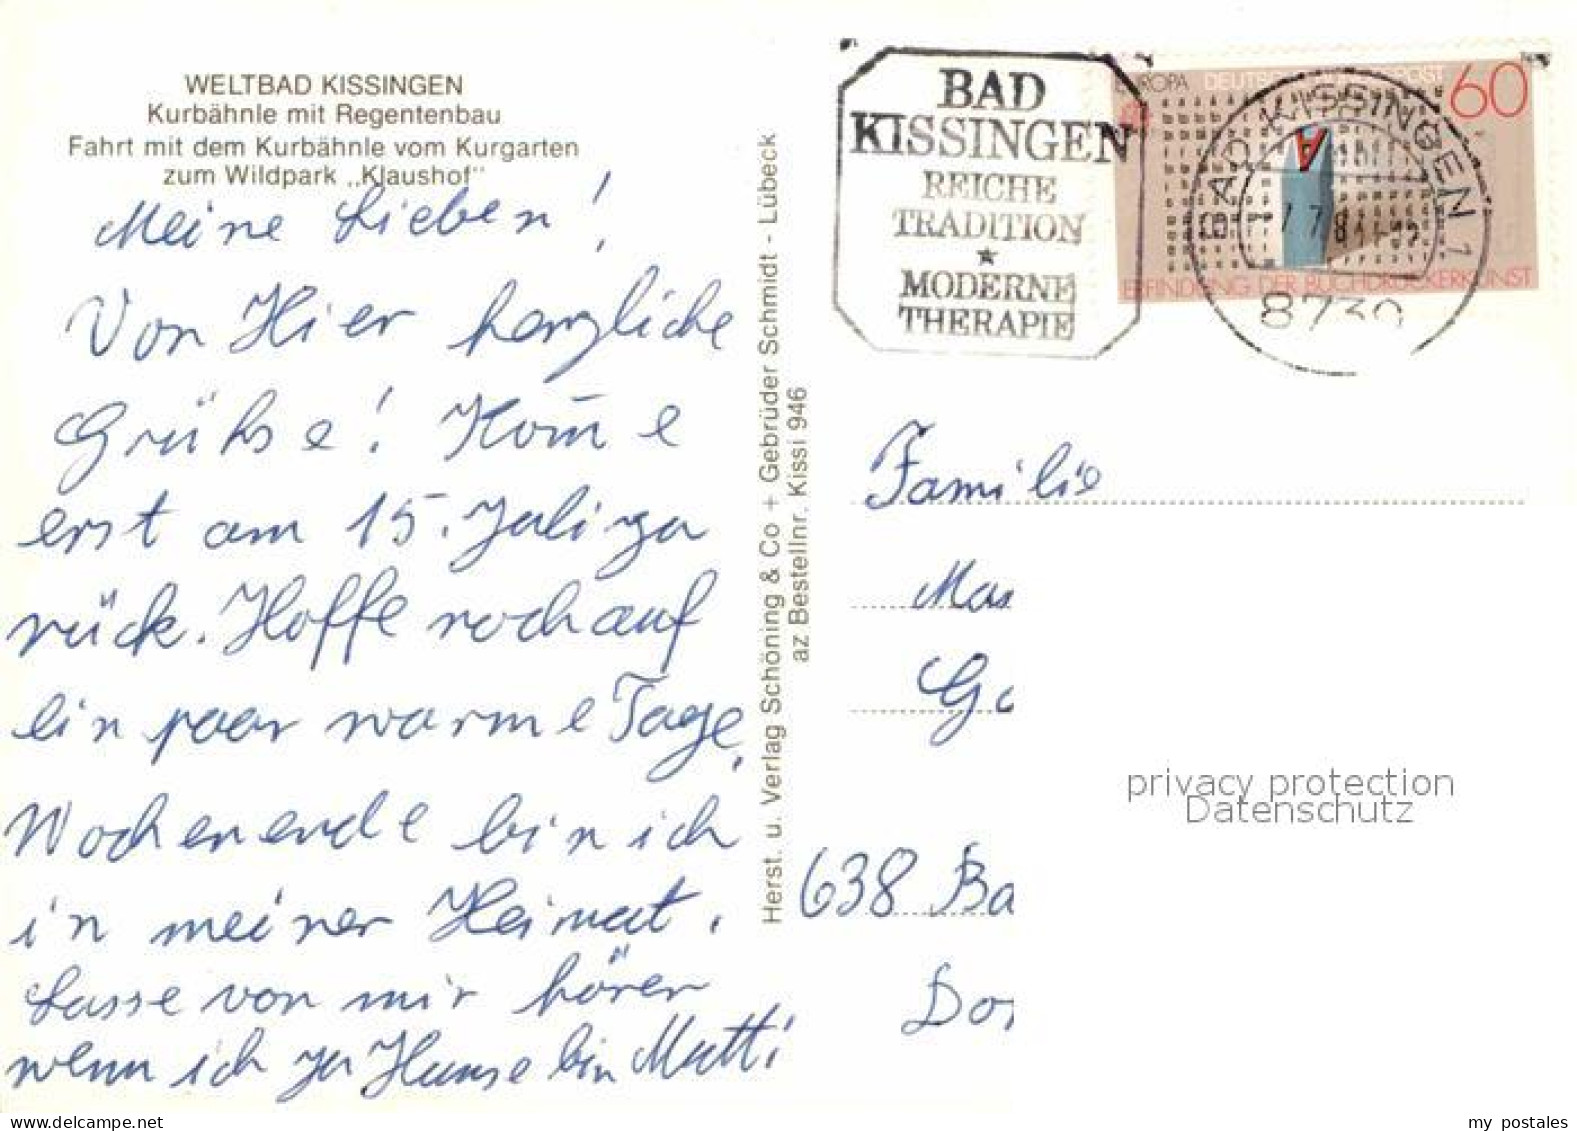 WELTBAD KISSINGEN
Kurbähnle mit Regentenbau
Fahrt mit dem Kurbähnle vom Kurgarten
zum Wildpark „Klaushof"
Meine Lieben!
Von Hier herzliche
Grühse! Kom̄e
erst am 15. Juli zu
rück. Hoffe noch auf
ein paar warme Tage,
Wochenende bin ich
in meiner Heimat.
Lasse von mir hören
wenn ich zu Hause bin Mutti
Herst. u. Verlag Schöning & Co + Gebrüder Schmidt - Lübeck
az Bestellnr. Kissi 946
BAD
KISSINGEN
REICHE
TRADITION
★
MODERNE
THERAPIE
EUROPA DEUTSCHE BUNDESPOST 60
ERFINDUNG DER BUCHDRUCKERKUNST
BAD KISSINGEN 1
8730
Familie
Ma
Ga
638 Ba
Do
privacy protection
Datenschutz
my postales